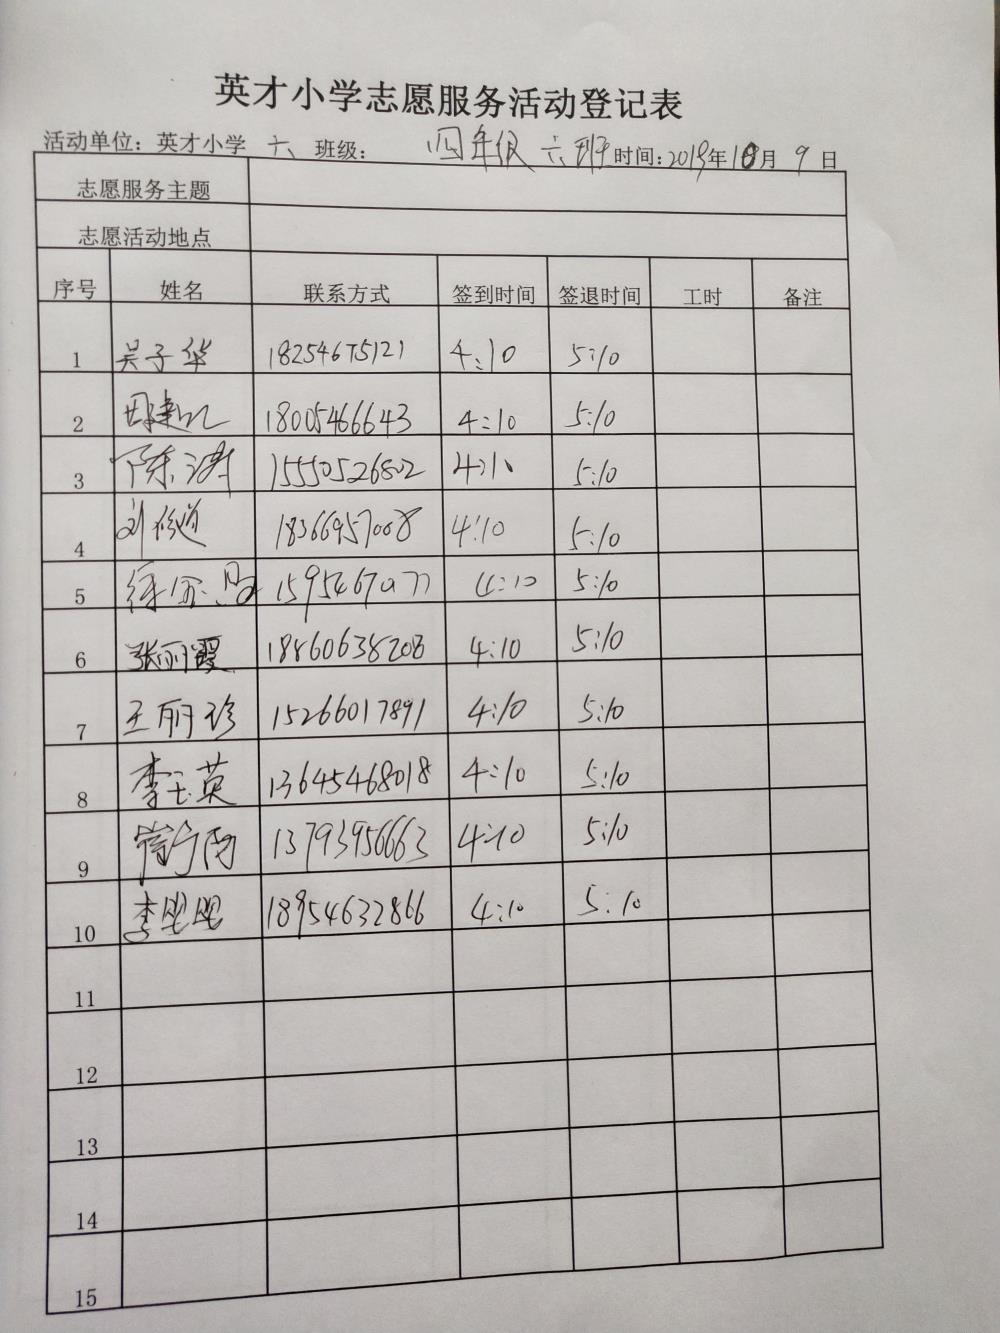 英才小学志愿服务活动登记表
活动单位：英才小学 六 班级： 四年级 六班 时间：2019年10月9日
志愿服务主题
志愿活动地点
序号 姓名 联系方式 签到时间 签退时间 工时 备注
1 吴子华 18254675121 4:10 5:10
2 18005466643 4:10 5:10
3 陈涛 15550526802 4:10 5:10
4 刘俊道 18366957008 4:10 5:10
5 4:10 5:10
6 张丽霞 18860638208 4:10 5:10
7 王丽珍 15266017891 4:10 5:10
8 李玉英 13645468018 4:10 5:10
9 13793956663 4:10 5:10
10 李盟盟 18954632866 4:10 5:10
11
12
13
14
15